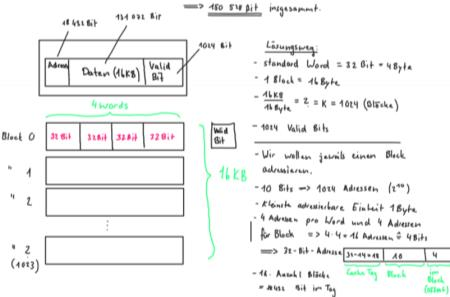 ⟹ 150 528 Bit insgesamt.
18 432 Bit
131 072 Bit
1024 Bit
Adress
Daten (16KB)
Valid Bit
4 Words
Block 0
32 Bit
32 Bit
32 Bit
32 Bit
Valid Bit
" 1
" 2
16 KB
" 2
(1023)
Lösungsweg:
- standard Word = 32 Bit = 4 Byte
- 1 Block = 16 Byte
- 16KB / 16 Byte = 2 = K = 1024 (Blöcke)
- 1024 Valid Bits
- Wir wollen jeweils einen Block adressieren.
- 10 Bits ⟹ 1024 Adressen (2^10)
- Kleinste adressierbare Einheit 1 Byte
- 4 Adressen pro Word und 4 Adressen
für Block => 4·4 = 16 Adressen ≙ 4 Bits
⟹ 32-Bit-Adresse
32-14=18
10
4
Cache Tag
Block
im Block
- 18 · Anzahl Blöcke
= 18432 Bit im Tag